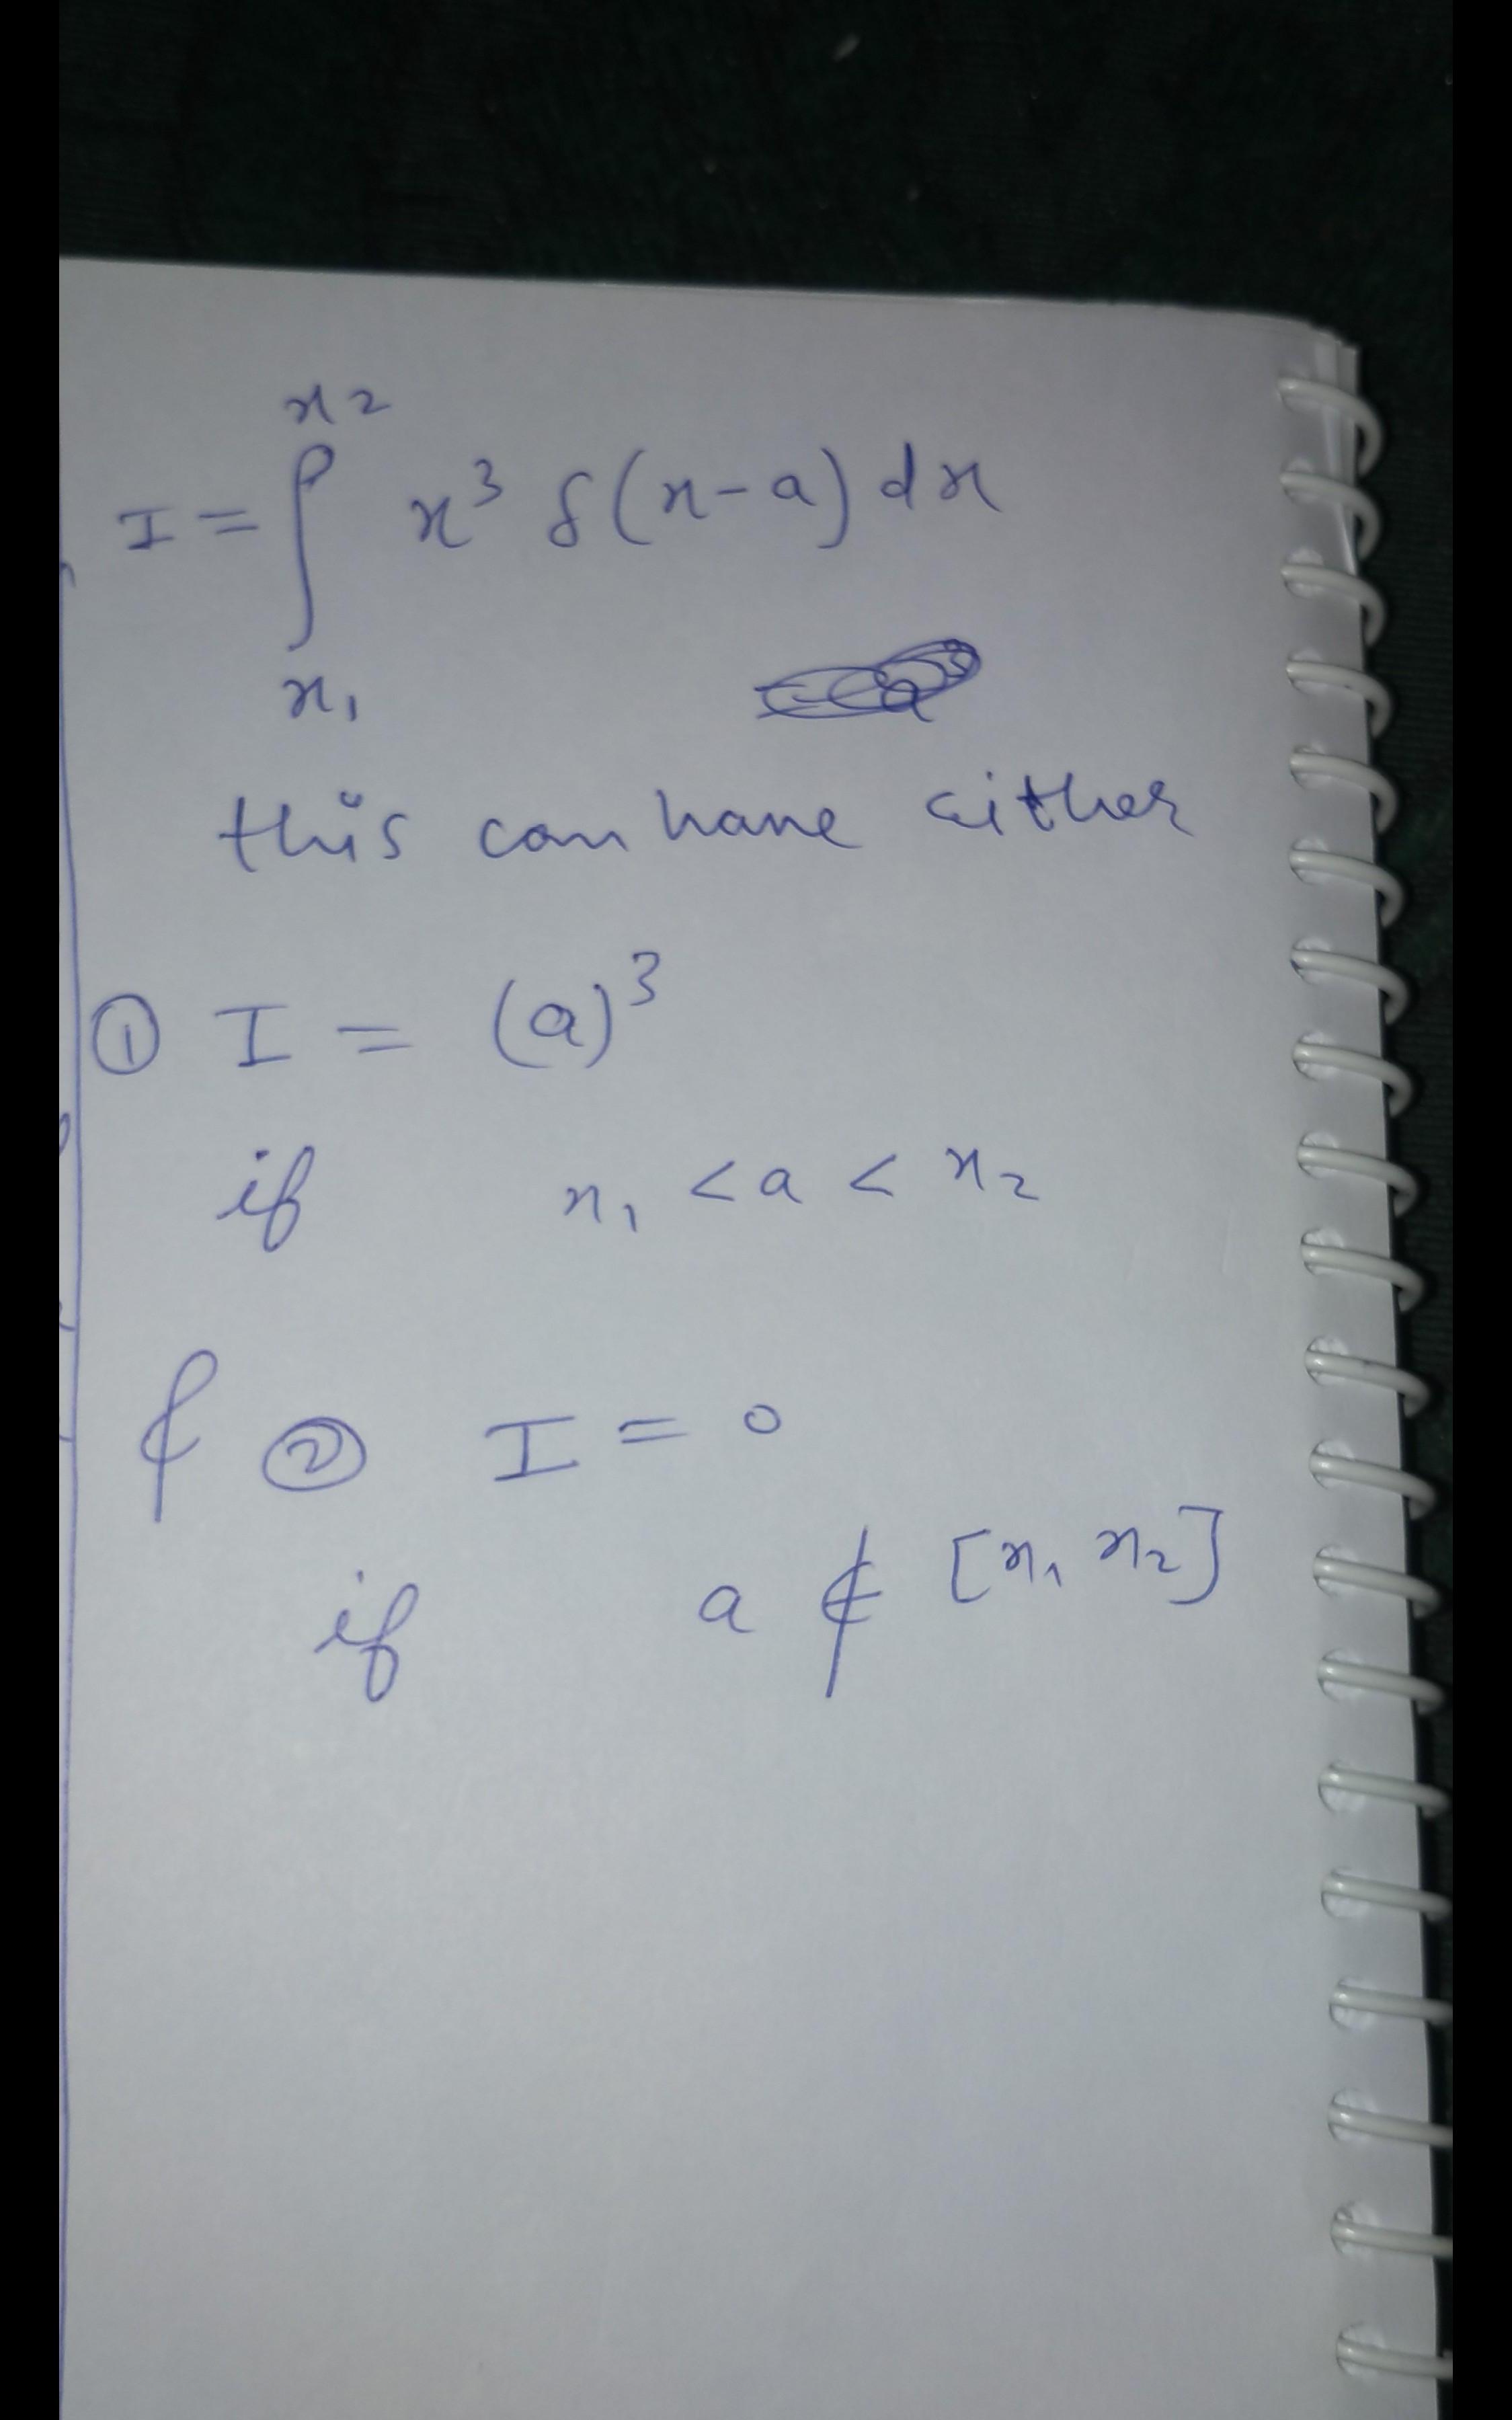 I = ∫_{x₁}^{x₂} x³ δ(x-a) dx
this can have either
① I = (a)³
if x₁ < a < x₂
& ② I = 0
if a ∉ [x₁ x₂]